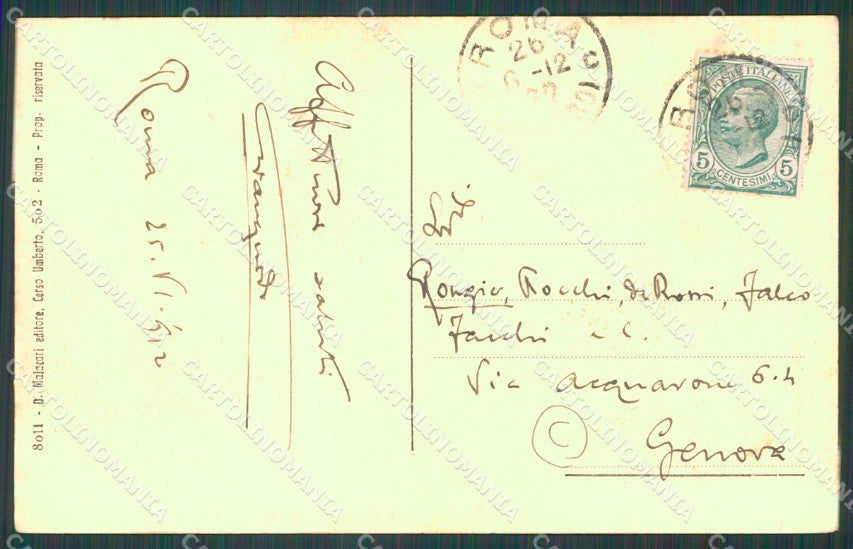 8011 - D. Malacari editore, Corso Umberto, 502 - Roma - Prop. riservata
Roma 25.VI.912
saluti
ROMA
26
-12
ROMA
26
POSTE ITALIANE
5 5
CENTESIMI
Rongier, Rocchi, de Rossi, Falco
Facchi e C.
Via Acquarone 6.4
C
Genova
CARTOLINOMANIA